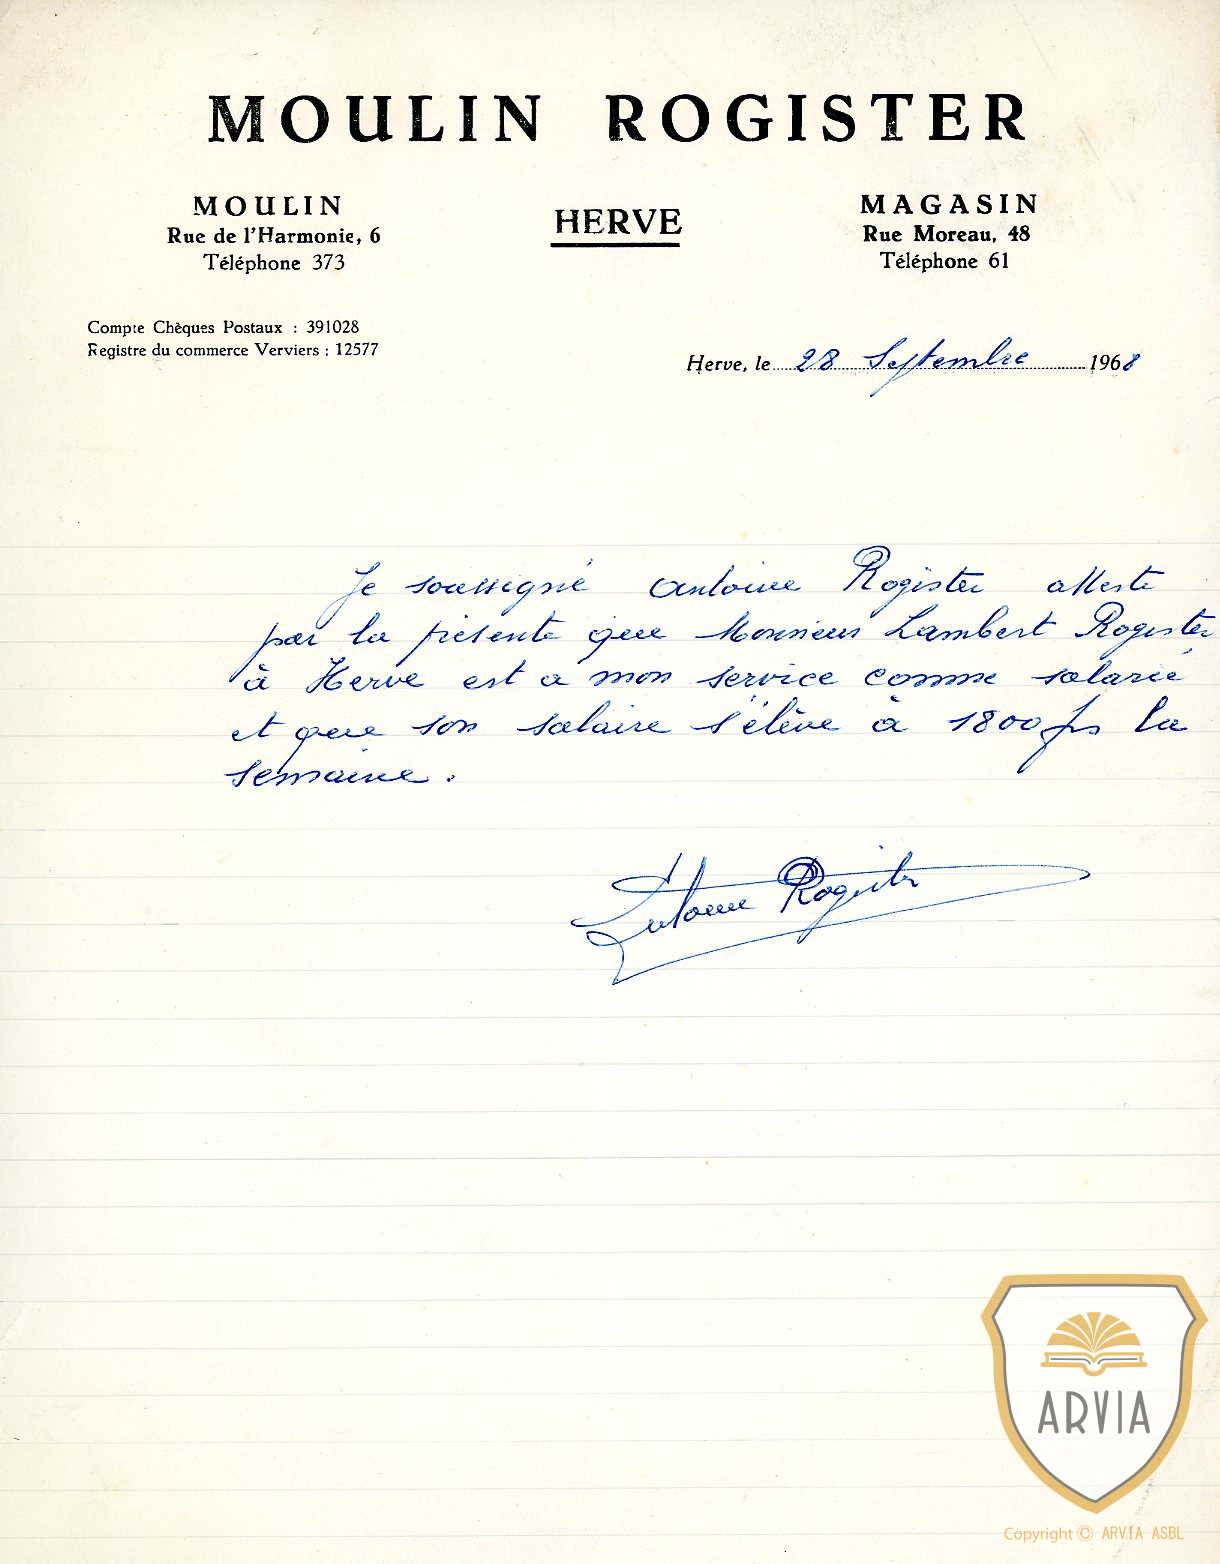 MOULIN ROGISTER
MOULIN
Rue de l'Harmonie, 6
Téléphone 373
HERVE
MAGASIN
Rue Moreau, 48
Téléphone 61
Compte Chèques Postaux : 391028
Registre du commerce Verviers : 12577
Herve, le 28 Septembre 1968
Je soussigné Antoine Rogister atteste
par la présente que Monsieur Lambert Rogister
à Herve est a mon service comme salarié
et que son salaire s'élève à 1800 frs la
semaine.
Antoine Rogister
ARVIA
Copyright © ARVIA ASBL